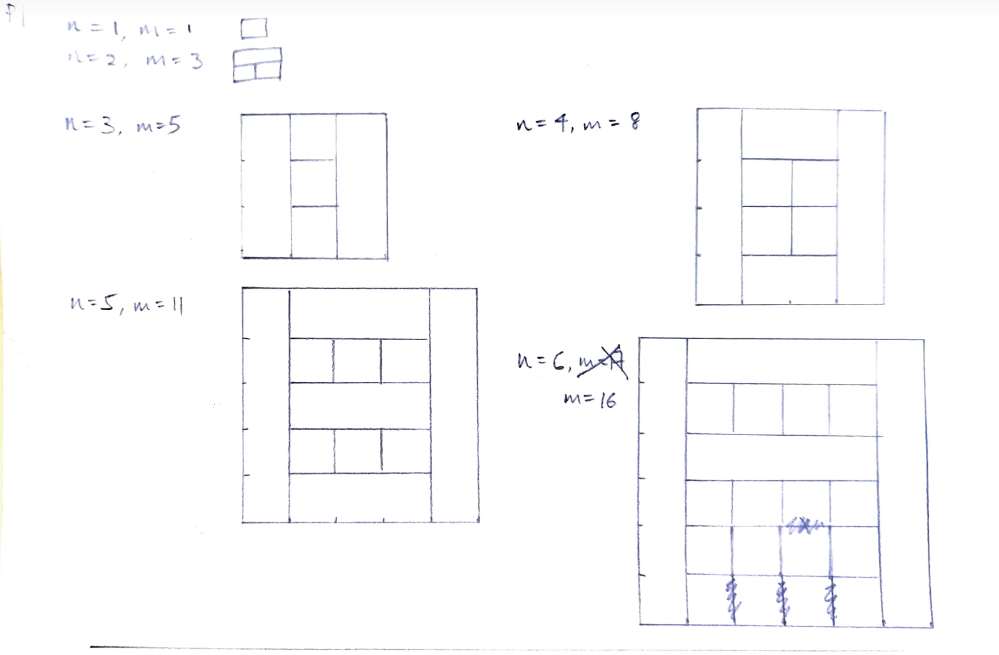 n = 1, m = 1
n = 2, m = 3
n = 3, m = 5
n = 4, m = 8
n = 5, m = 11
n = 6,
m = 16